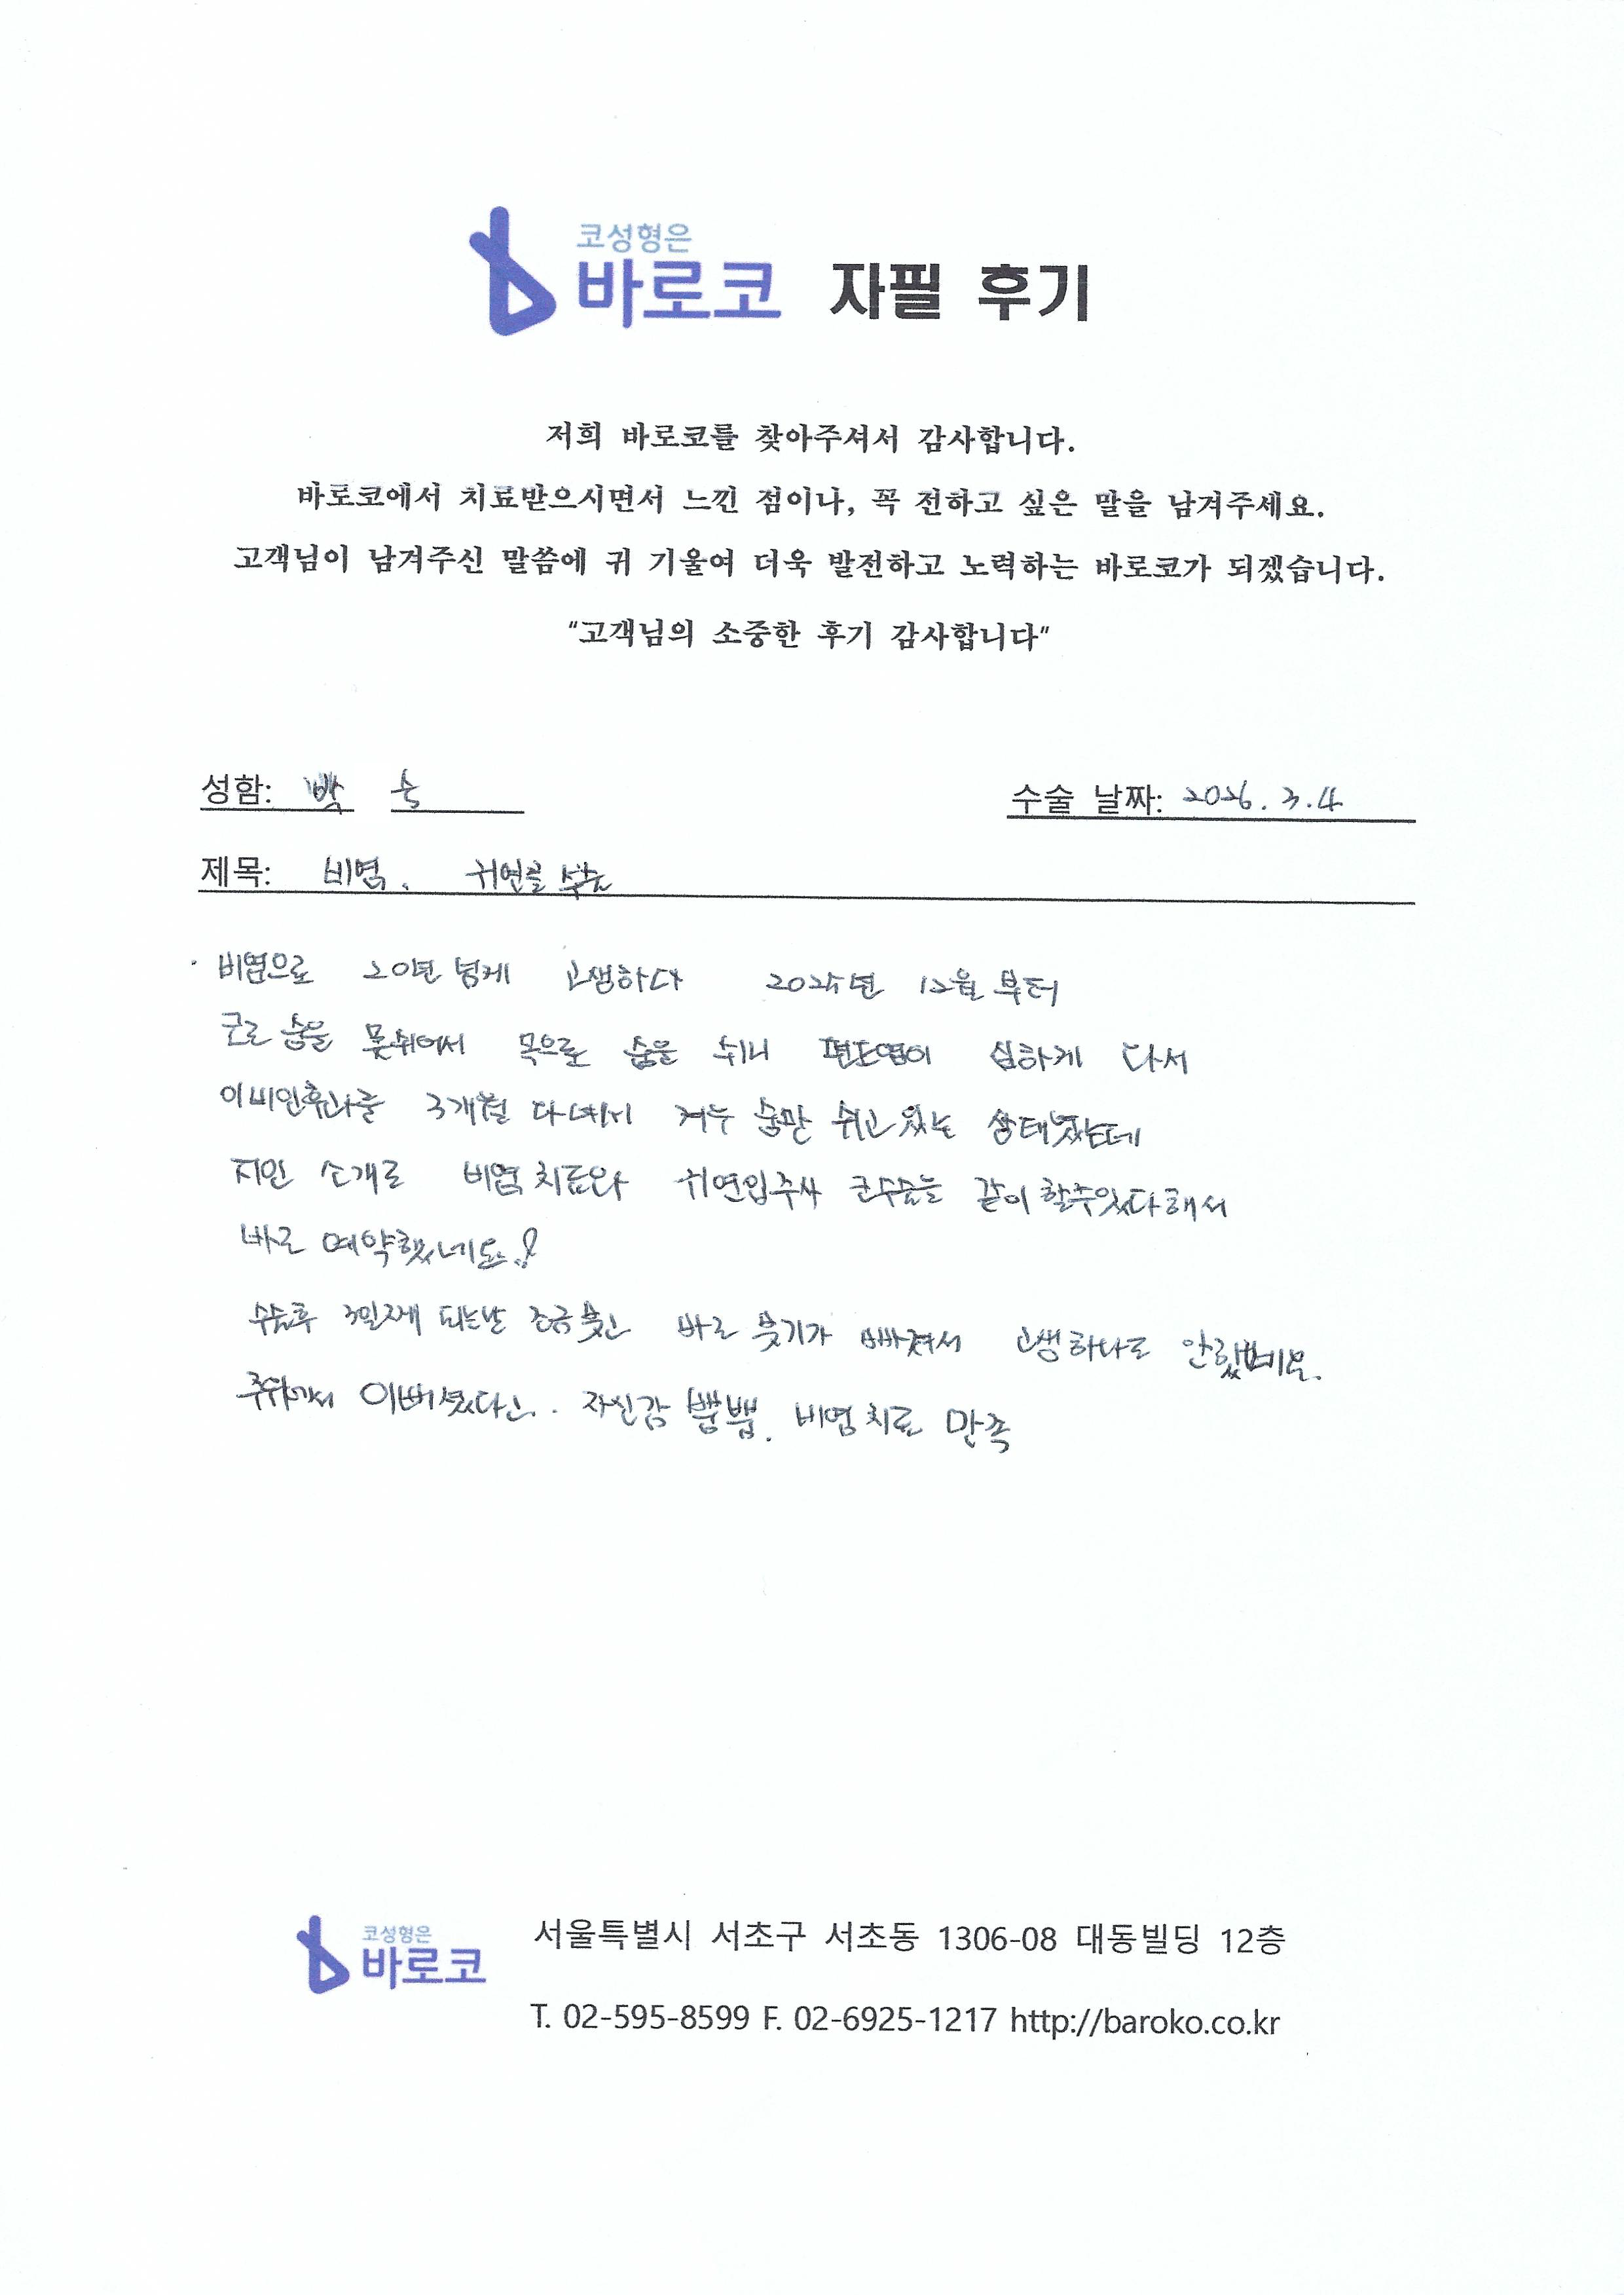 코성형은
바로코 자필 후기
저희 바로코를 찾아주셔서 감사합니다.
바로코에서 치료받으시면서 느낀 점이나, 꼭 전하고 싶은 말을 남겨주세요.
고객님이 남겨주신 말씀에 귀 기울여 더욱 발전하고 노력하는 바로코가 되겠습니다.
"고객님의 소중한 후기 감사합니다"
성함: 박 숙 수술 날짜: 2026. 3. 4
제목: 비염, 귀연골 수술
비염으로 20년 넘게 고생하다 2025년 12월 부터
코로 숨을 못쉬어서 목으로 숨을 쉬니 편도염이 심하게 와서
이비인후과를 3개월 다녀서 겨우 숨만 쉬고 있는 상태였는데
지인 소개로 비염 치료와 귀연입주사 코수술을 같이 할수있다해서
바로 예약했네요!
수술후 3일째 되는날 조금붓고 바로 붓기가 빠져서 고생 하나도 안했네요.
주위에서 이뻐졌다고. 자신감 뿜뿜. 비염 치료 만족
코성형은
바로코
서울특별시 서초구 서초동 1306-08 대동빌딩 12층
T. 02-595-8599 F. 02-6925-1217 http://baroko.co.kr